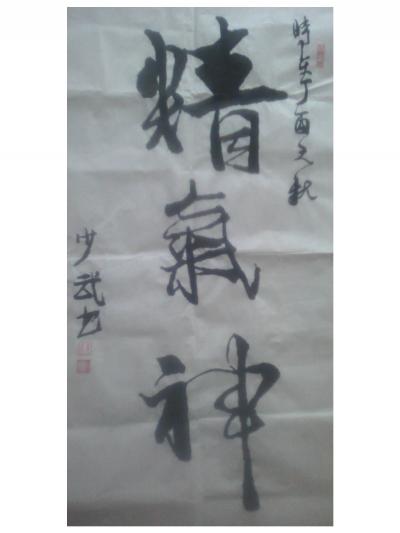 時在丁酉之秋
精氣神
少武书